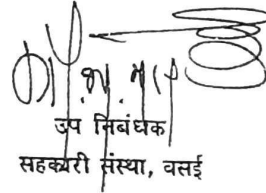 उप निबंधक
सहकारी संस्था, वसई